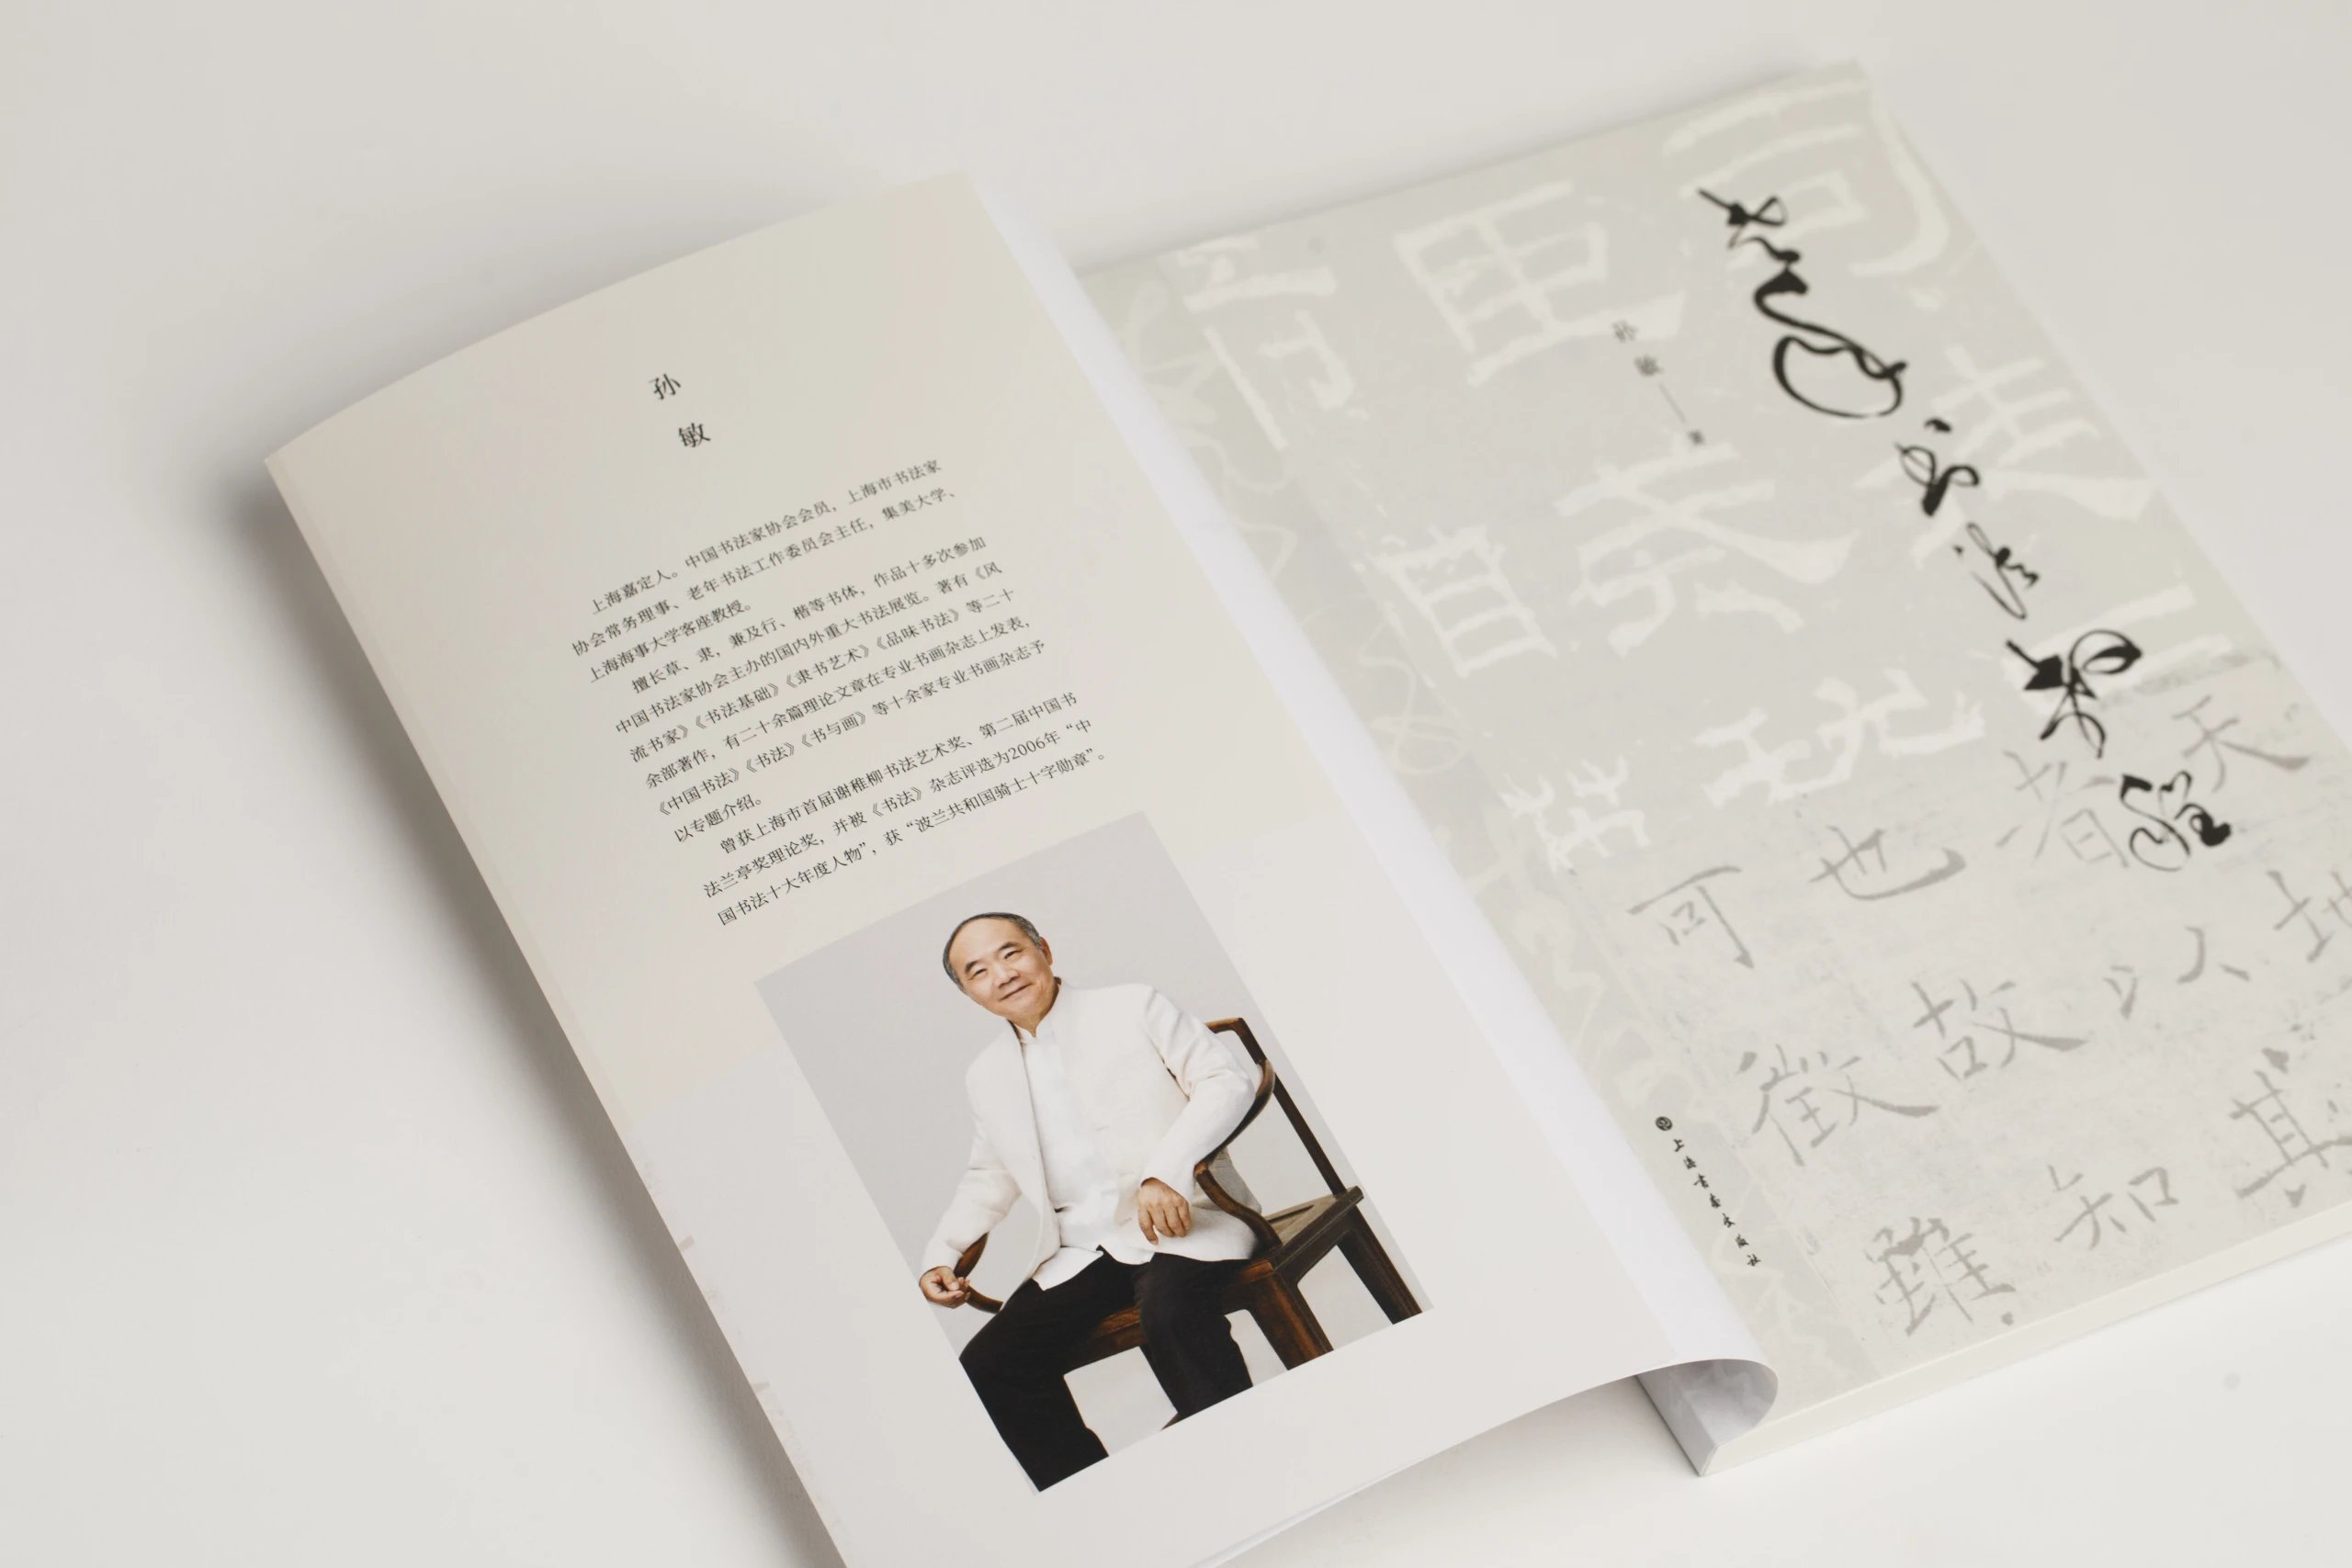 孙
敏
上海嘉定人。中国书法家协会会员，上海市书法家
协会常务理事、老年书法工作委员会主任，集美大学、
上海海事大学客座教授。
擅长草、隶，兼及行、楷等书体，作品十多次参加
中国书法家协会主办的国内外重大书法展览。著有《风
流书家》《书法基础》《隶书艺术》《品味书法》等二十
余部著作，有二十余篇理论文章在专业书画杂志上发表，
《中国书法》《书法》《书与画》等十余家专业书画杂志予
以专题介绍。
曾获上海市首届谢稚柳书法艺术奖、第二届中国书
法兰亭奖理论奖，并被《书法》杂志评选为2006年“中
国书法十大年度人物”，获“波兰共和国骑士十字勋章”。
孙敏——著
书法
上海书画出版社
天
地
者
人
其
也
以
可
故
知
徵
雖